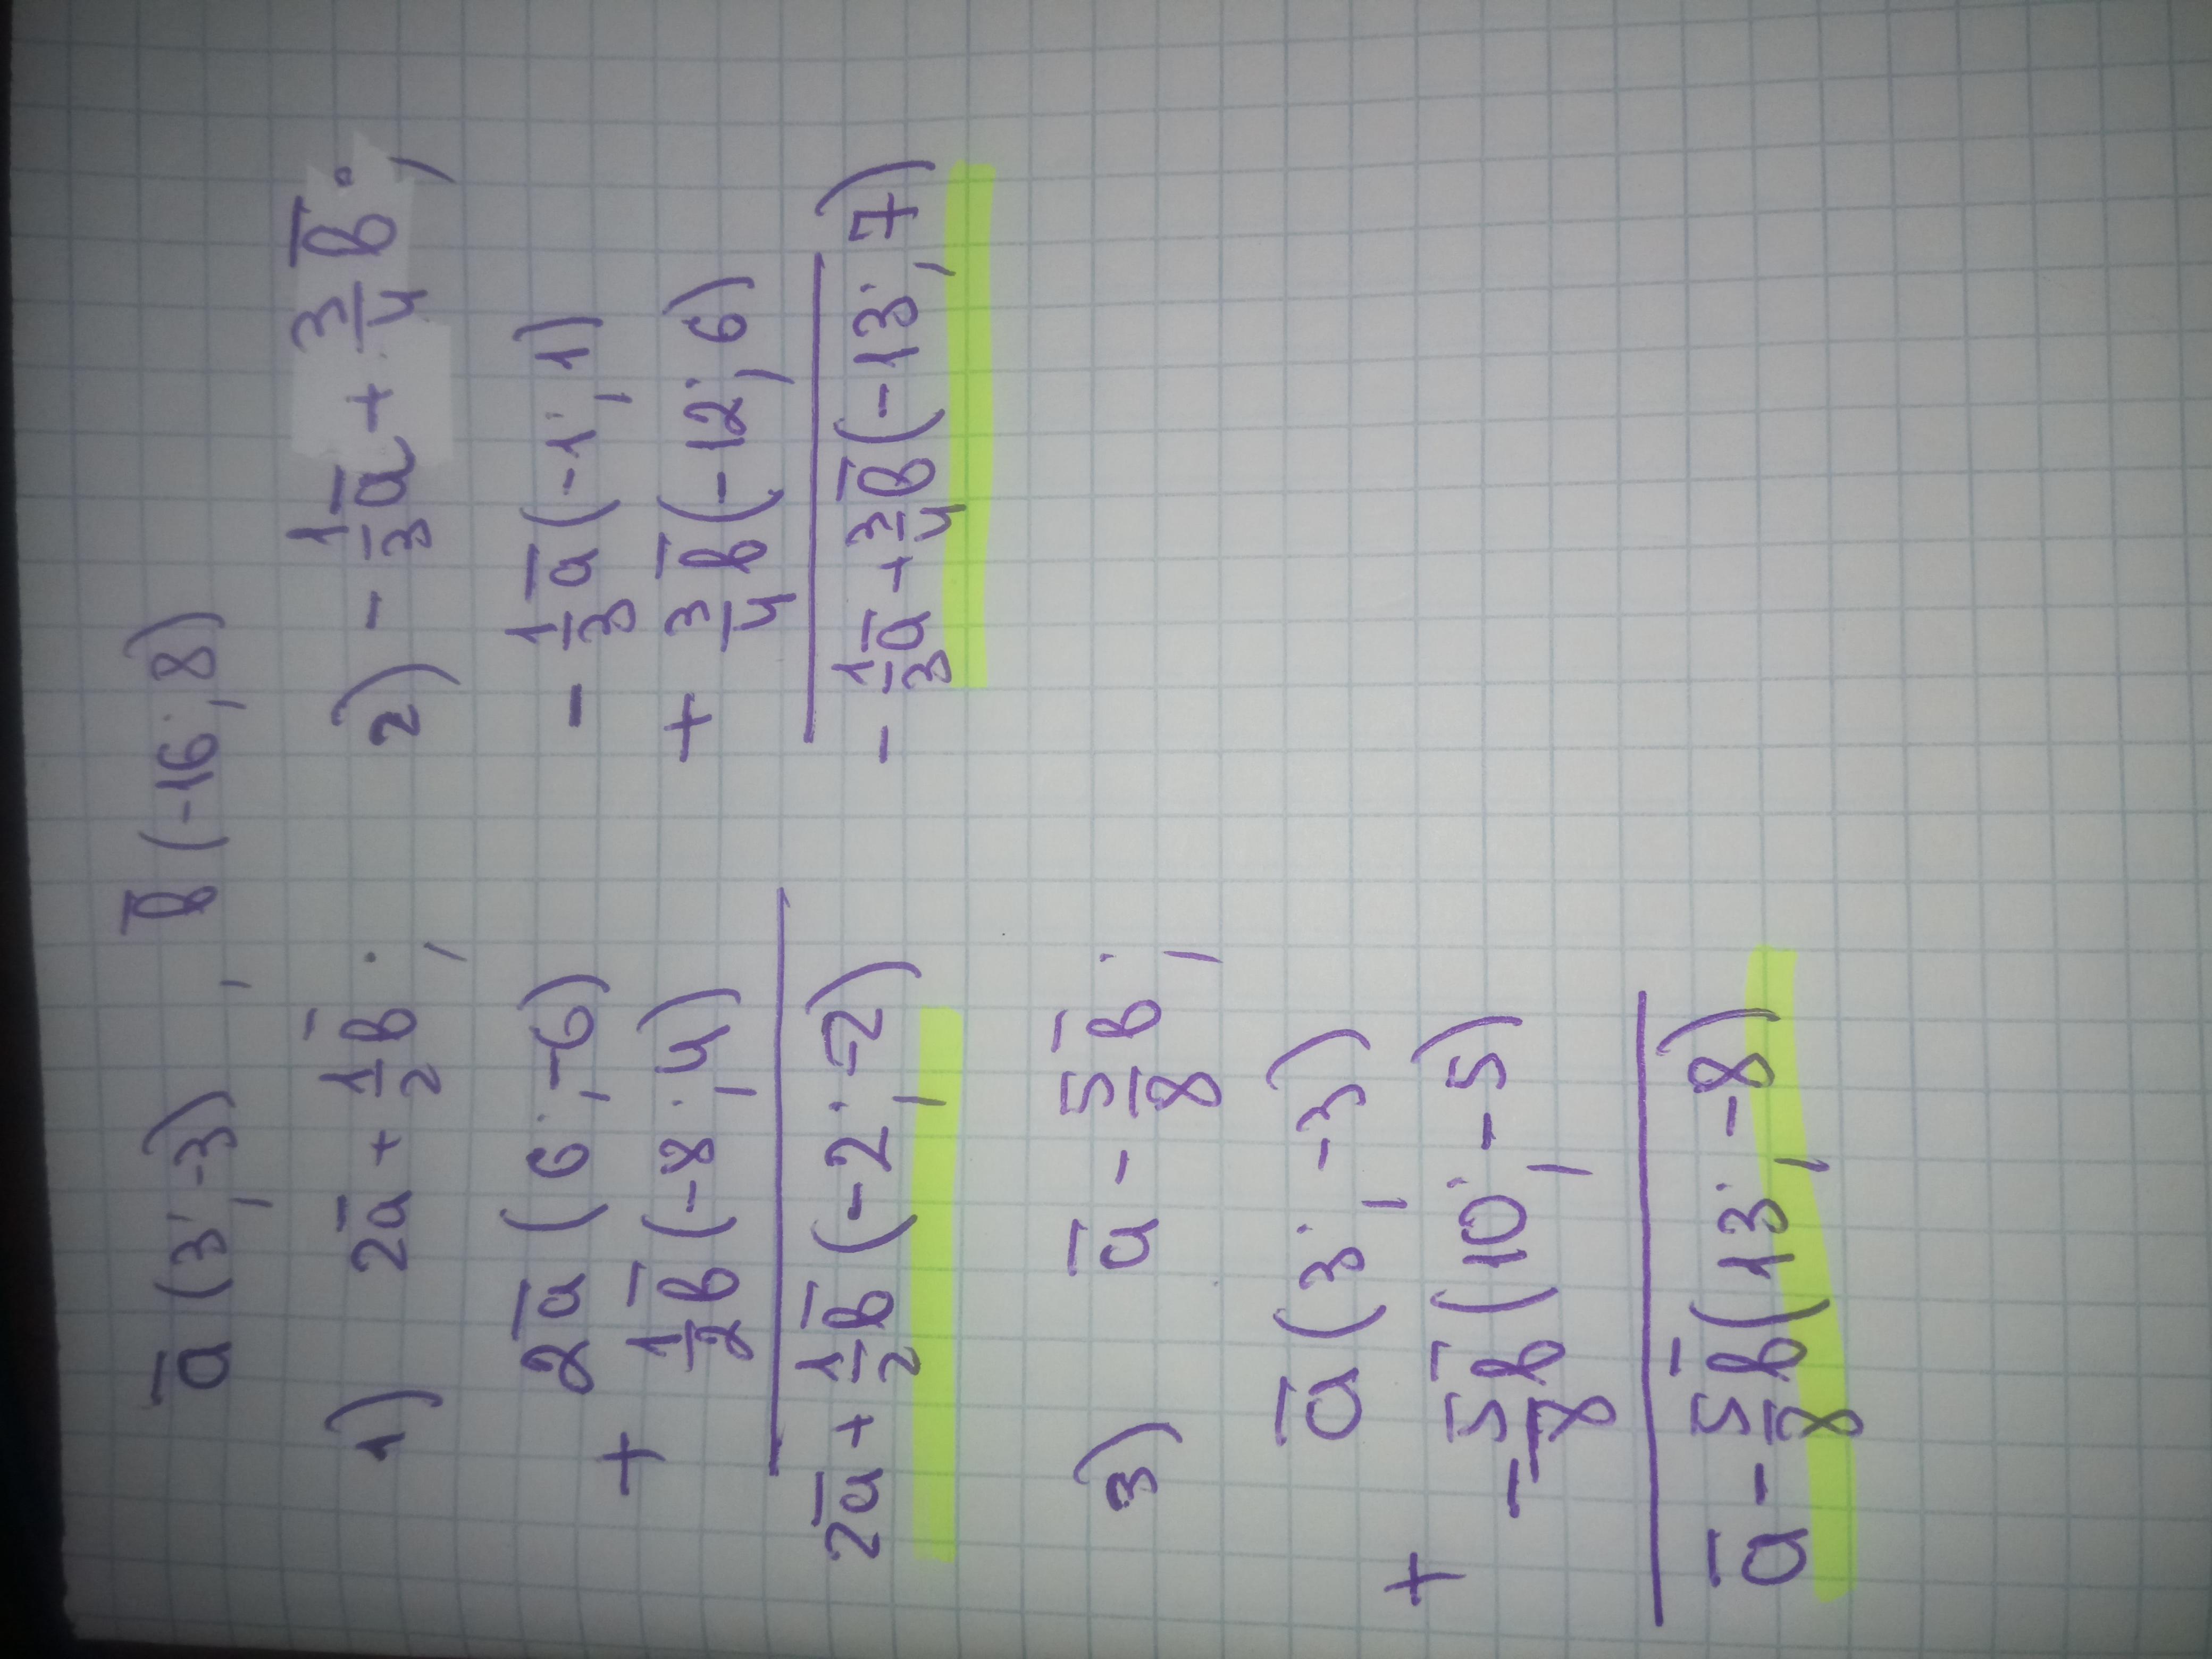 a̅ (3; -3), b̅ (-16; 8)
1) 2a̅ + 1/2 b̅;
2a̅ (6; -6)
+
1/2 b̅ (-8; 4)
2a̅ + 1/2 b̅ (-2; -2)
2) - 1/3 a̅ + 3/4 b̅;
- 1/3 a̅ (-1; 1)
+ 3/4 b̅ (-12; 6)
- 1/3 a̅ + 3/4 b̅ (-13; 7)
3) a̅ - 5/8 b̅;
a̅ (3; -3)
+
- 5/8 b̅ (10; -5)
a̅ - 5/8 b̅ (13; -8)